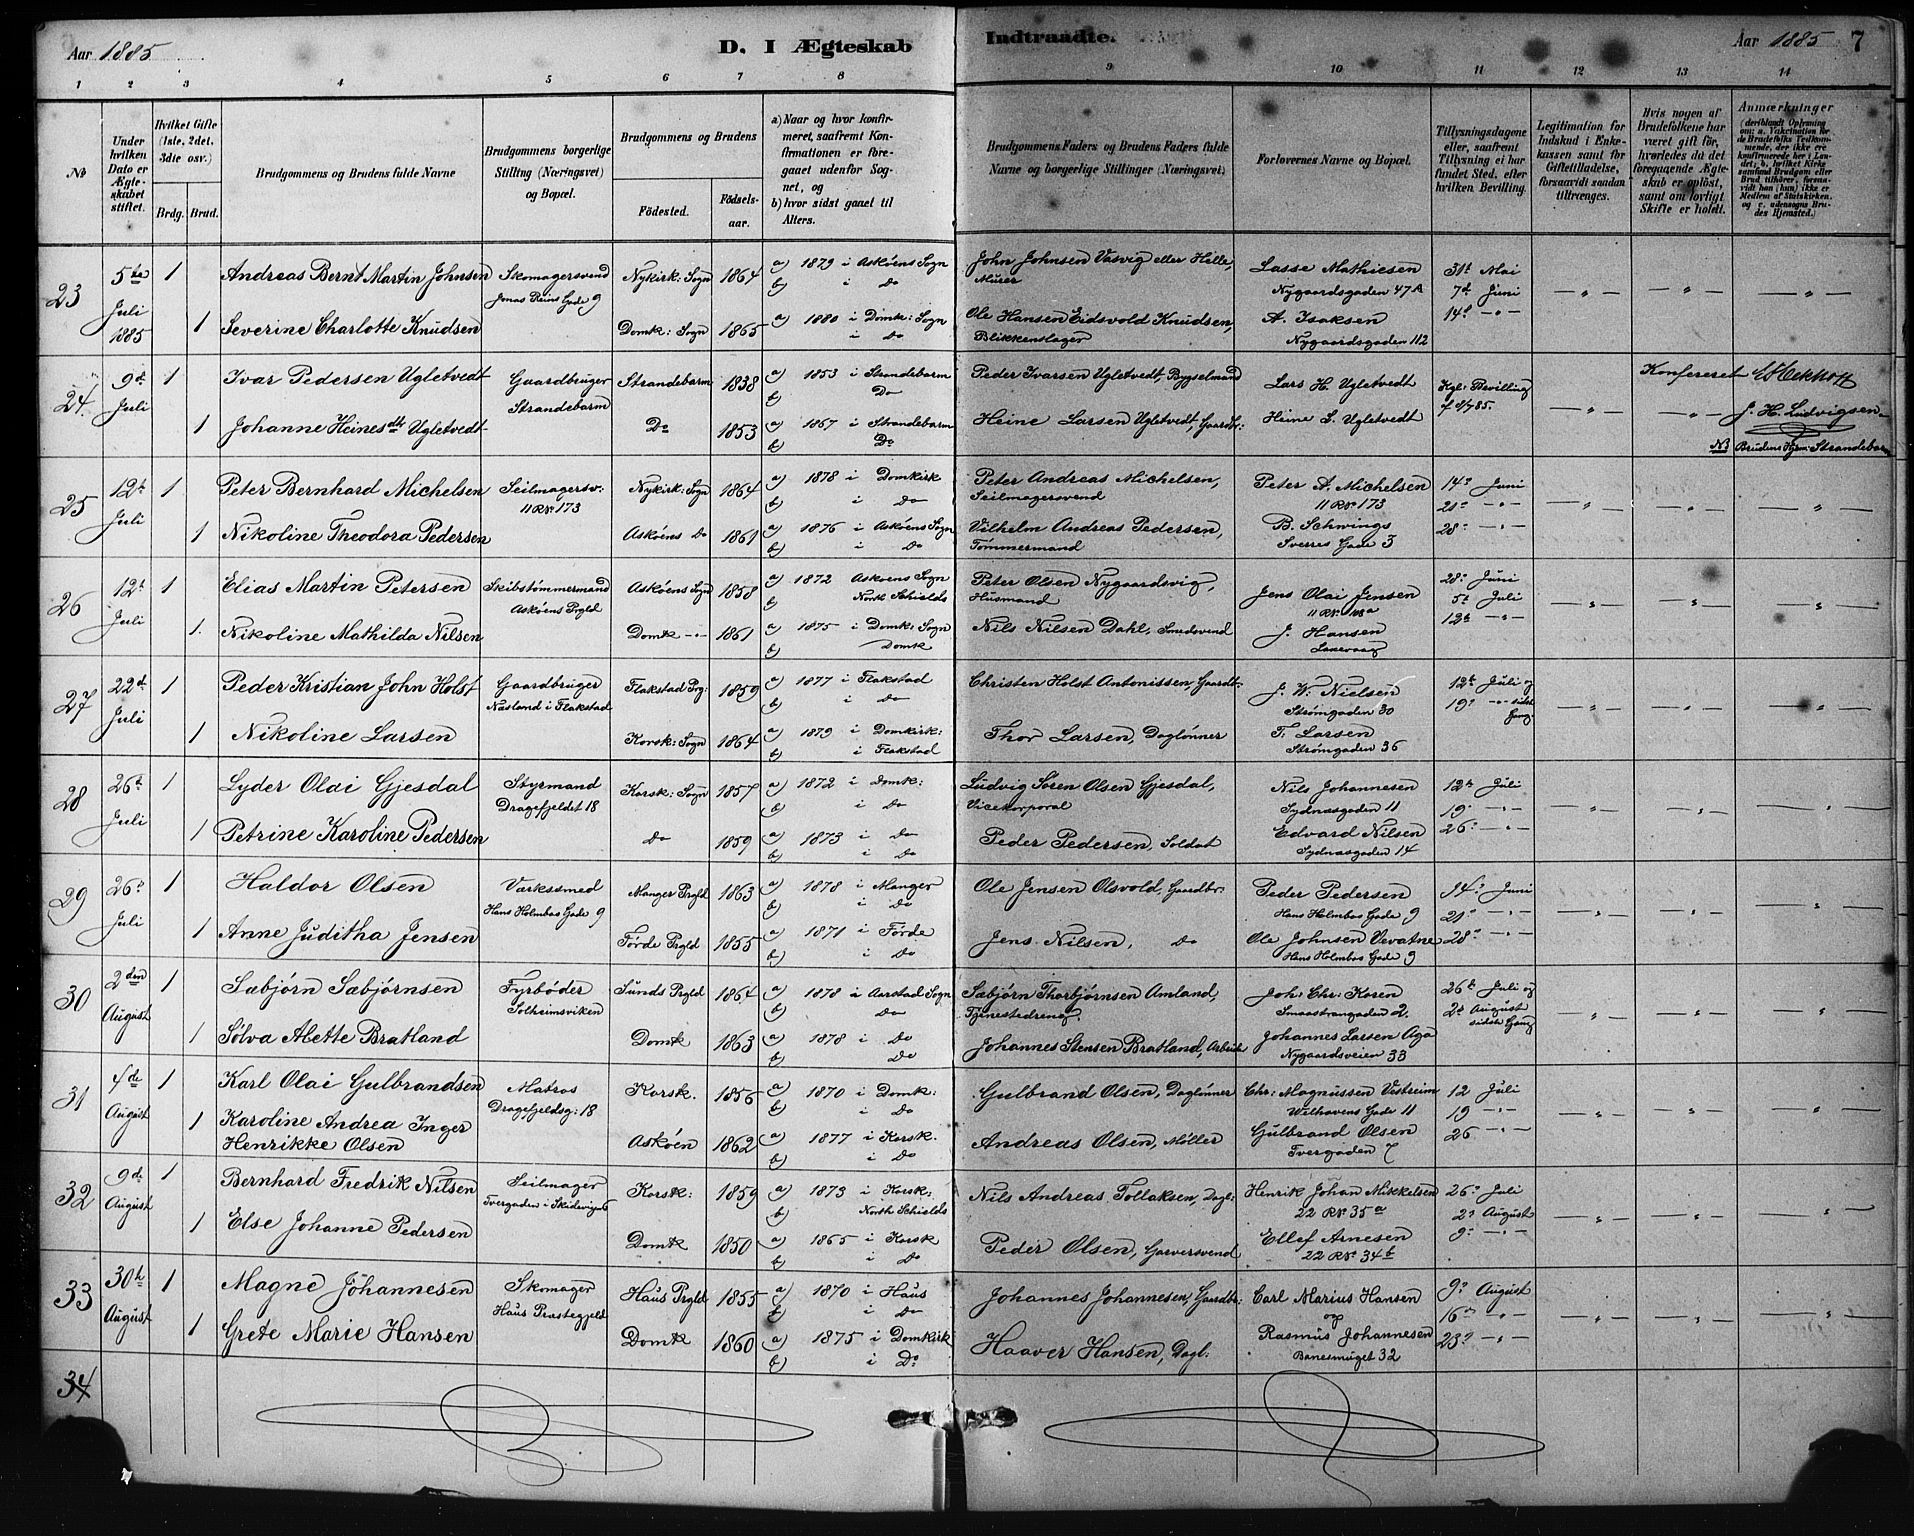 Aar 1885
D. I Ægteskab Indtraadte.
Aar 1885 7
1 2 3 4 5 6 7 8 9 10 11 12 13 14
No
Under hvilken Dato er Ægteskabet stiftet.
Hvilket Gifte (1ste, 2det, 3die osv.)
Brdg. Brud.
Brudgommens og Brudens fulde Navne
Brudgommens borgerlige Stilling (Næringsvei) og Bopæl.
Brudgommens og Brudens
Fødested. Fødselsaar.
a) Naar og hvor konfirmeret, saafremt Konfirmationen er foregaaet udenfor Sognet, og
b) hvor sidst gaaet til Alters.
Brudgommens Faders og Brudens Faders fulde Navne og borgerlige Stillinger (Næringsvei)
Forlovernes Navne og Bopæl.
Tillysningsdagene eller, saafremt Tillysning ei har fundet Sted, efter hvilken Bevilling.
Legitimation for Indskud i Enkekassen samt for Giftetilladelse, forsaavidt saadan tiltrænges.
Hvis nogen af Brudefolkene har været gift før, hvorledes da det foregaaende Ægteskab er opløst, samt om lovligt Skifte er holdt.
Anmærkninger
(deriblandt Oplysning om: a. Vakcination for de Brudefolks Vedkommende, der ikke ere konfirmerede her i Landet; b. hvilket Kirkesamfund Brudgom eller Brud tilhører, forsaavidt han (hun) ikke er Medlem af Statskirken, og c. udensogns Brudes Hjemsted.)
23 5te Juli 1885 1 Andreas Bernt Martin Johnsen Skomagersvend Jonas Reins Gade 9 Nykirk: Sogn 1864 a) 1879 i Askøens Sogn b) i Do John Johnsen Vasvig eller Helle, Murer Lasse Mathiesen Nygaardsgaden 47A 31t Mai 7d Juni
1 Severine Charlotte Knudsen Domk: Sogn 1865 a) 1880 i Domk: Sogn i Do Ole Hansen Eidsvold Knudsen, Blikkenslager A. Isaksen Nygaardsgaden 112 14d
24. 9d Juli 1 Ivar Pedersen Ugletvedt Gaardbruger Strandebarm Strandebarm 1838 a) 1853 i Strandebarm b) Do Peder Ivarsen Ugletvedt, Bygselmand Lars H. Ugletvedt Kgl: Bevilling af 8/7 85. Konfereret
1 Johanne Heinesdtr Ugletvedt Do 1853 a) 1867 i Strandebarm b) Do Heine Larsen Ugletvedt, Gaardbr: Heine L. Ugletvedt J. H. Ludvigsen
NB Brudens Hjem: Strandebarm
25 12t Juli 1 Peter Bernhard Michelsen Seilmagersv: 11 R No 173 Nykirk: Sogn 1864 a) 1878 i Domkirk b) i Do Peter Andreas Michelsen, Seilmagersvend Peter A. Michelsen 11 R No 173 14d Juni 21d
1 Nikoline Theodora Pedersen Askøens Do 1861 a) 1876 i Askøens Sogn b) i Do Vilhelm Andreas Pedersen, Tømmermand B. Schwings Sverres Gade 3 28d
26 12t Juli 1 Elias Martin Petersen Skibstømmermand Askøens Prgld Askøens Sogn 1858 a) 1872 Askøens Sogn b) North Schields Peter Olsen Nygaardsvig, Husmand Jens Olai Jensen 28d Juni 5t Juli
1. Nikoline Mathilda Nilsen Domk 1861 a) 1875 i Domk: Sogn b) Domk Nils Nilsen Dahl, Smedsvend J. Hansen Laxevaag 12th
27 22d Juli 1 Peder Kristian John Holst Gaardbruger Næsland i Flakstad Flakstad Prg: 1859 a) 1877 i Flakstad b) i Do Christen Holst Antonissen, Gaardb. J. W. Nielsen Strømgaden 30 12te Juli og 19d sidste Gang
1 Nikoline Larsen Korsk: Sogn 1864 a) 1879 i Domkirk: i Flakstad Thor Larsen, Daglønner T. Larsen Strømgaden 36
28 26t Juli 1 Lyder Olai Gjesdal Styrmand Dragefjeldet 18 Korsk: Sogn 1857 a) 1872 i Domk: b) i Do Ludvig Søren Olsen Gjesdal, Vicekorporal Nils Johannesen Sydnæsgaden 11 12th Juli 19
1 Petrine Karoline Pedersen Do 1859 a) 1873 i Do b) i Do Peder Pedersen, Soldat Edvard Nilsen Sydnæsgaden 14 26
29 26d Juli 1 Haldor Olsen Værkssmed Hans Holmboes Gade 9 Manger Prgld 1863 a) 1878 i Manger b) i Do Ole Jensen Olsvold, Gaardbr: Peder Pedersen Hans Holmboes Gade 9 14d Juni 21d
1 Anne Juditha Jensen Førde Prgld 1855 a) 1871 i Førde b) i Do Jens Nilsen, Do Ole Johnsen Vevatne Hans Holmboes Gade 9 28d
30 2den August 1 Sæbjørn Sæbjørnsen Fyrbøder Solheimsviken Sunds Prgld 1864 a) 1878 i Aarstad Sogn b) Do Sæbjørn Thorbjørnsen Amland, Tjenestedreng Joh: Chr: Koren Smaastrangaden 2. 26t Juli og 2d August sidste Gang
1 Sølva Alette Bratland Domk 1863 a) 1878 i Do b) Do Johannes Stensen Bratland, Arbeid Johannes Larsen Aga Nygaardsveien 33
31 4de August 1 Karl Olai Gulbrandsen Matros Dragefjeldsg: 18 Korsk. 1856 a) 1870 i Domk: b) i Do Gulbrand Olsen, Daglønner Chr: Magnussen Vestreim Welhavens Gade 11 12 Juli 19
1 Karoline Andrea Inger Henrikke Olsen Askøen 1862 a) 1877 i Korsk. b) i Do Andreas Olsen, Møller Gulbrand Olsen Tvergaden 7 26
32 9de August 1 Bernhard Fredrik Nilsen Seilmager Tvergaden i Skidevigen 6 Korsk: 1859 a) 1873 i Korsk: b) North Schields Nils Andreas Tollaksen, Dagl: Henrik Johan Mikkelsen 22 R No 35a 26d Juli 2d August
1 Else Johanne Pedersen Domk 1850 a) 1865 i Korsk b) i Do Peder Olsen, Garversvend Ellef Arnesen 22 R No 34b 9d
33 30te August 1 Magne Johannesen Skomager Haus Præstegjeld Haus Prgld 1855 a) 1870 i Haus b) i Do Johannes Johannesen, Gaardbr: Carl Marius Hansen og 9d August 16d
1 Grete Marie Hansen Domk 1860 a) 1875 i Domkirk b) i Do Haaver Hansen, Dagl: Rasmus Johannesen 32 23d
34